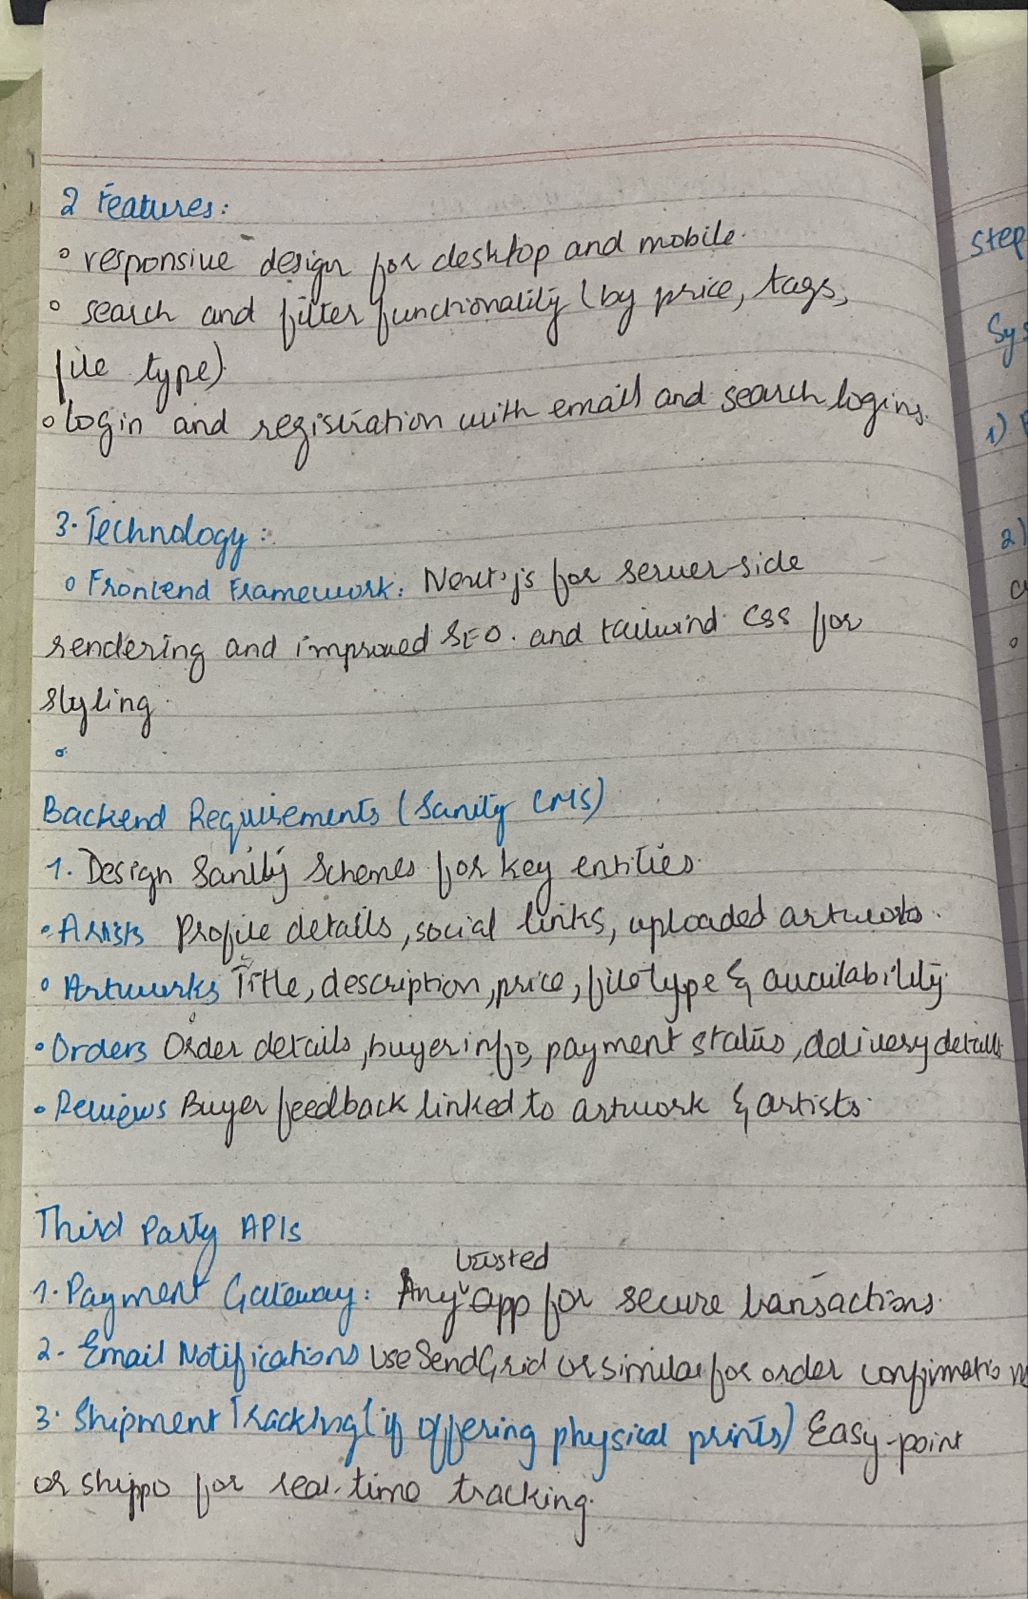 2 Features:
° responsive design for desktop and mobile.
° search and filter functionality (by price, tags,
file type)
° Login and registration with email and search logins.
3. Technology:
° Frontend Framework: Next.js for server-side
rendering and improved SEO. and tailwind CSS for
styling.
°
Backend Requirements (Sanity CMS)
1. Design Sanity Schemes for key entities.
• Artists Profile details, social links, uploaded artworks.
° Artworks Title, description, price, file type & availability
• Orders Order details, buyer info, payment status, delivery details
• Reviews Buyer feedback linked to artwork & artists.
Third Party APIs
trusted
1. Payment Gateway: Any app for secure transactions.
2. Email Notifications Use SendGrid or similar for order confirmation
3. Shipment Tracking (if offering physical prints) Easy-point
or shippo for real-time tracking.
Step
Sys
1)
2)